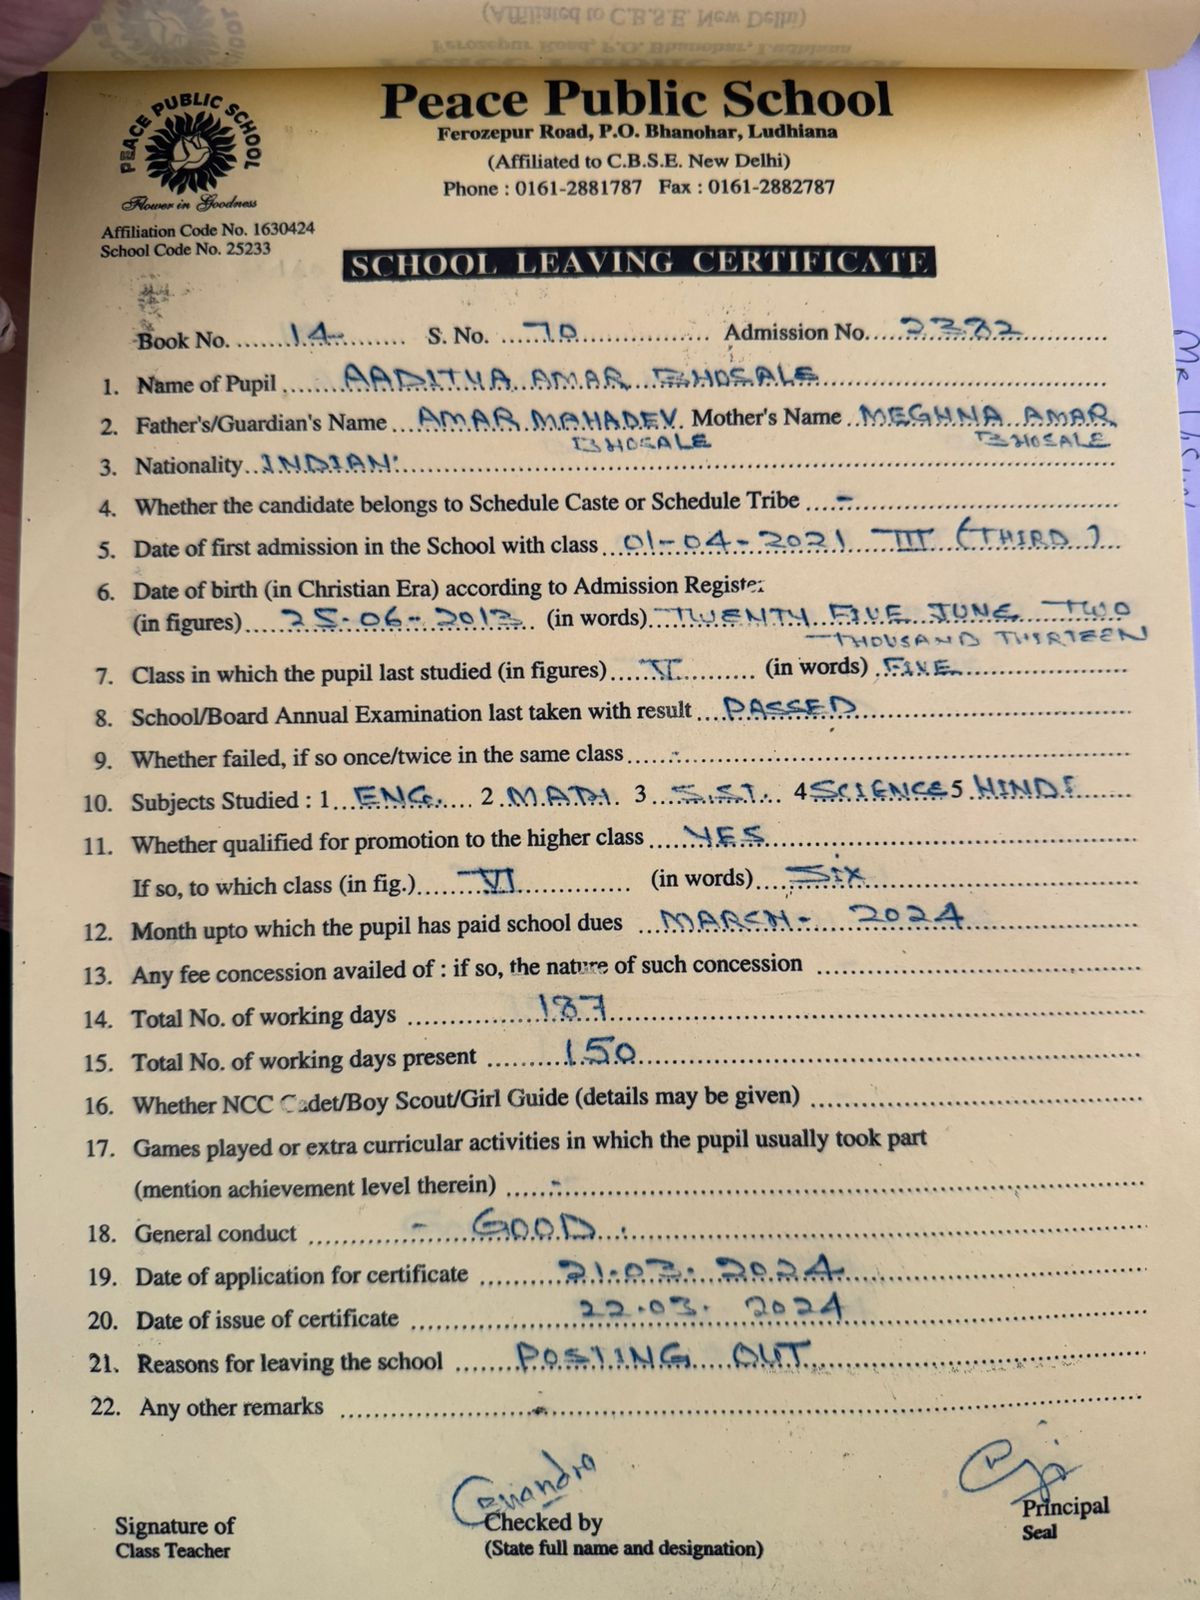 (Affiliated to C.B.S.E. New Delhi)
Ferozepur Road, P.O. Bhanohar, Ludhiana
PEACE PUBLIC SCHOOL
Flower in Goodness
Peace Public School
Ferozepur Road, P.O. Bhanohar, Ludhiana
(Affiliated to C.B.S.E. New Delhi)
Phone : 0161-2881787 Fax : 0161-2882787
Affiliation Code No. 1630424
School Code No. 25233
SCHOOL LEAVING CERTIFICATE
Book No. 14 S. No. 70 Admission No. 2382
1. Name of Pupil AADITYA AMAR BHOSALE
2. Father's/Guardian's Name AMAR MAHADEV Mother's Name MEGHNA AMAR
BHOSALE BHOSALE
3. Nationality INDIAN
4. Whether the candidate belongs to Schedule Caste or Schedule Tribe -
5. Date of first admission in the School with class 01-04-2021 III (THIRD)
6. Date of birth (in Christian Era) according to Admission Register
(in figures) 25-06-2013 (in words) TWENTY FIVE JUNE TWO
THOUSAND THIRTEEN
7. Class in which the pupil last studied (in figures) V (in words) FIVE
8. School/Board Annual Examination last taken with result PASSED
9. Whether failed, if so once/twice in the same class -
10. Subjects Studied : 1 ENG. 2 MATH 3 S.ST. 4 SCIENCE 5 HINDI
11. Whether qualified for promotion to the higher class YES
If so, to which class (in fig.) VI (in words) SIX
12. Month upto which the pupil has paid school dues MARCH - 2024
13. Any fee concession availed of : if so, the nature of such concession
14. Total No. of working days 187
15. Total No. of working days present 150
16. Whether NCC Cadet/Boy Scout/Girl Guide (details may be given)
17. Games played or extra curricular activities in which the pupil usually took part
(mention achievement level therein) -
18. General conduct - GOOD.
19. Date of application for certificate 21.03.2024
20. Date of issue of certificate 22.03.2024
21. Reasons for leaving the school POSTING OUT
22. Any other remarks -
Signature of
Class Teacher
Checked by
(State full name and designation)
Principal
Seal